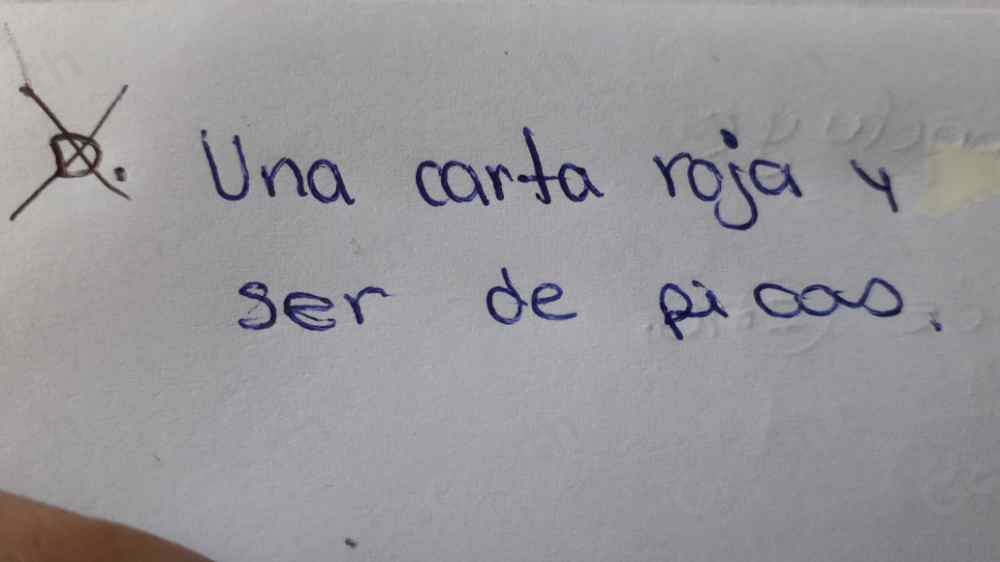 Una carta roja y
ser de picas.